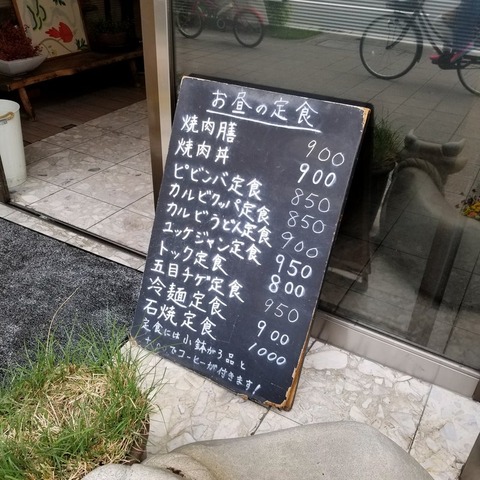 お昼の定食
焼肉膳 900
焼肉丼 900
ピビンバ定食 850
カルビクッパ定食 850
カルビうどん定食 900
ユッケジャン定食 950
トック定食 800
五目チゲ定食 950
冷麺定食 900
石焼定食 1000
定食には小鉢が3品と
でコーヒーが付きます!